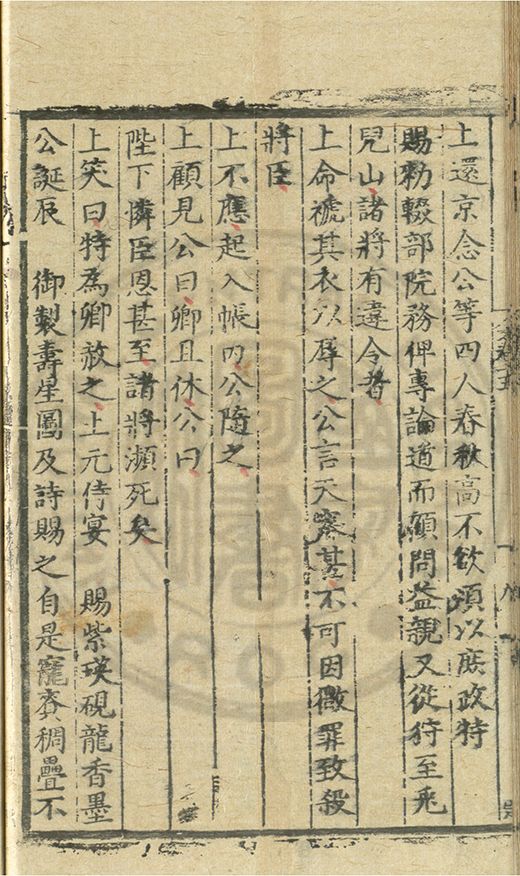 上還京念公等四人春秋高不欲煩以庶政特
賜勑輟部院務俾專論道而顧問益親又從狩至兎
兒山諸將有違令者
上命褫其衣以辱之公言天寒甚不可因微罪致殺
將臣
上不應起入帳内公隨之
上顧見公曰卿且休公曰
陛下憐臣恩甚至諸將瀕死矣
上笑曰特爲卿赦之上元侍宴 賜紫瑛硯龍香墨
公誕辰 御製壽星圖及詩賜之自是寵賚稠疊不